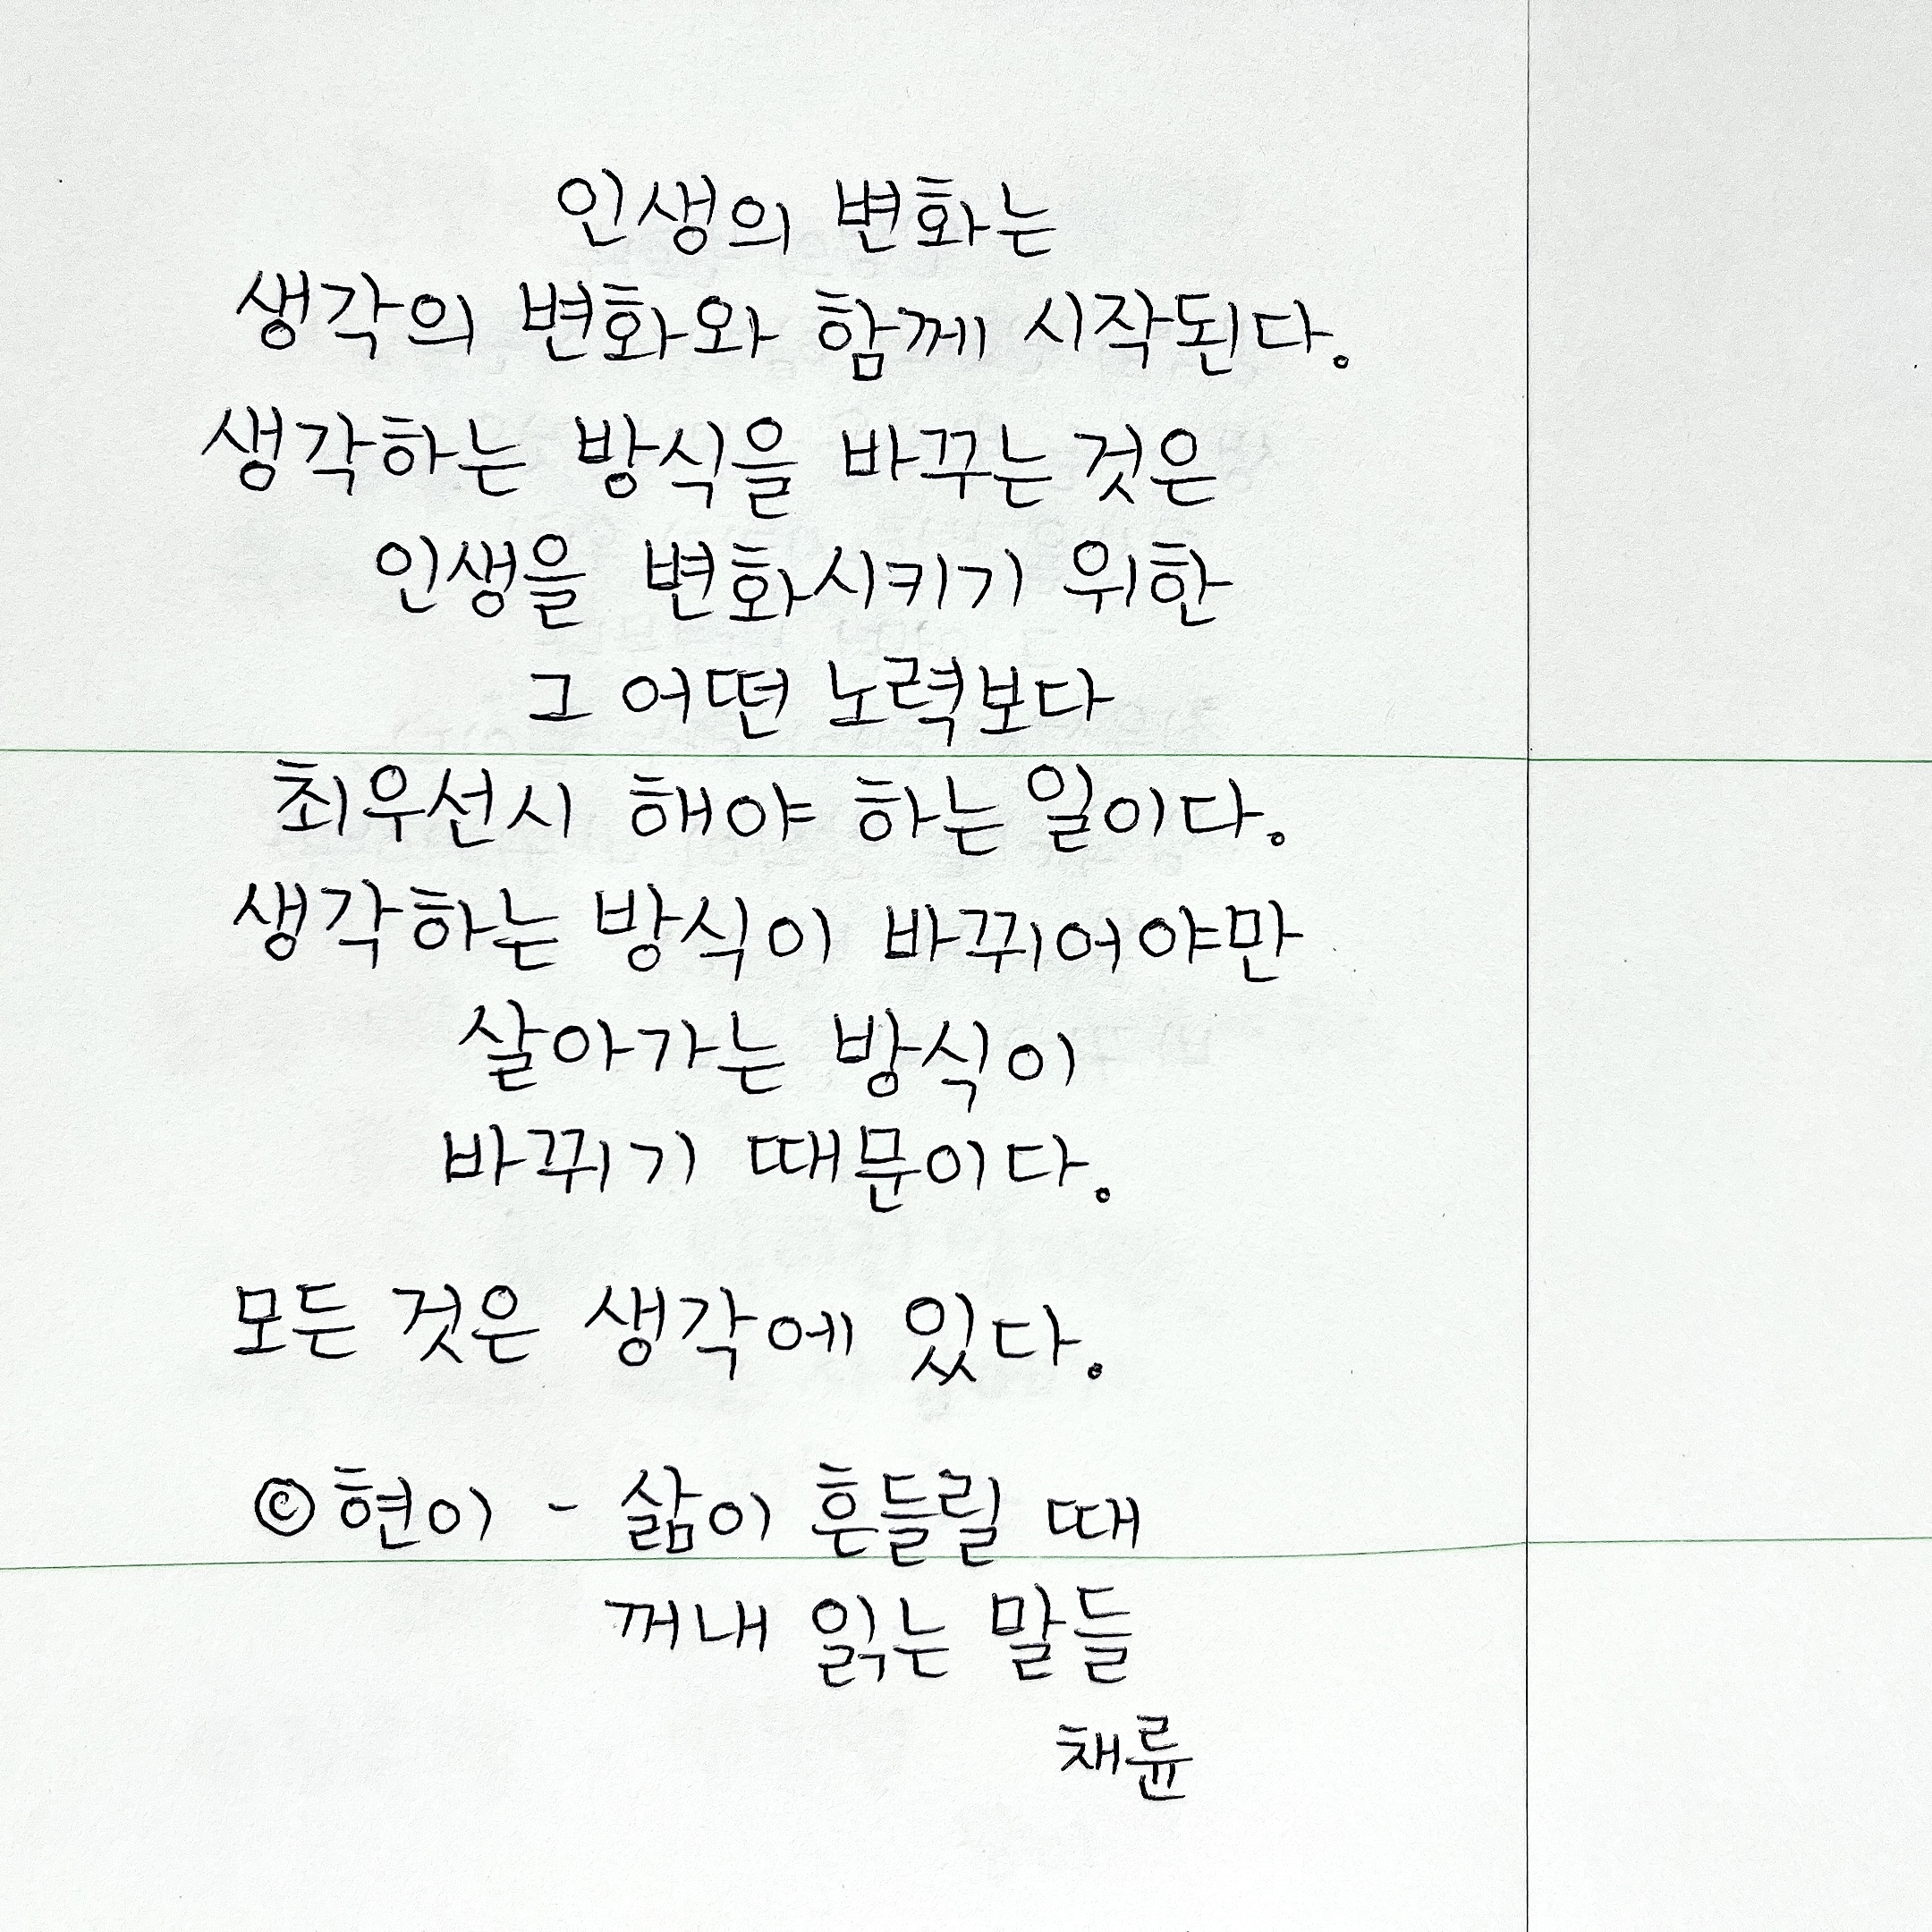 인생의 변화는
생각의 변화와 함께 시작된다.
생각하는 방식을 바꾸는 것은
인생을 변화시키기 위한
그 어떤 노력보다
최우선시 해야 하는 일이다.
생각하는 방식이 바뀌어야만
살아가는 방식이
바뀌기 때문이다.
모든 것은 생각에 있다.
©현이 - 삶이 흔들릴 때
꺼내 읽는 말들
채륜